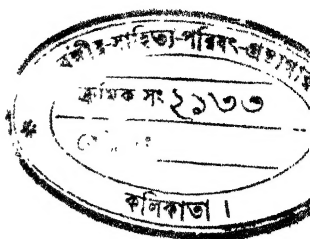 বঙ্গীয়-সাহিত্য-পরিষৎ-গ্রন্থাগার
ক্রমিক সং ২১৩৩
কলিকাতা ।